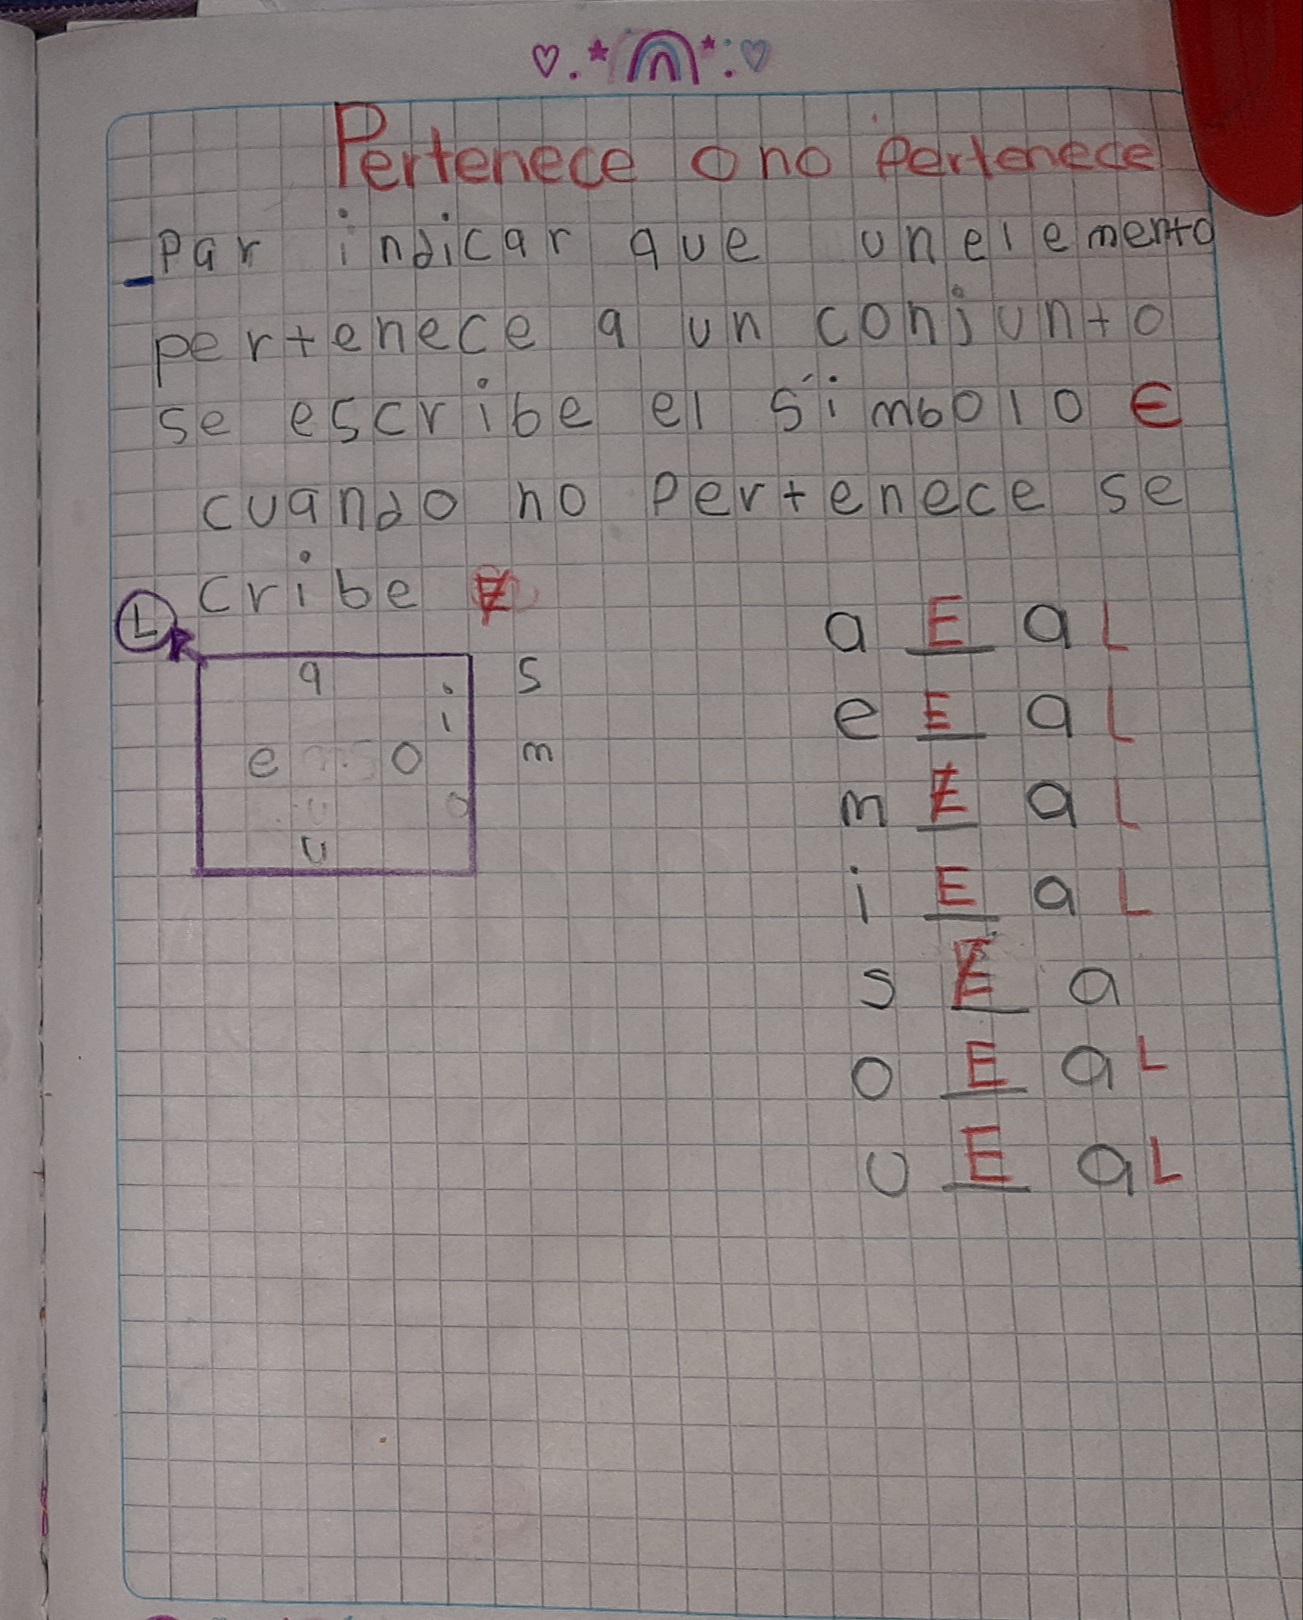 Pertenece o no pertenece
_Par indicar que un elemento
pertenece a un conjunto
se escribe el símbolo ∈
cuando no pertenece se
cribe ∉
L
a
i
e o
u
s
m
a E a L
e E a L
m ∉ a L
i E a L
s ∉ a
o E a L
u E a L